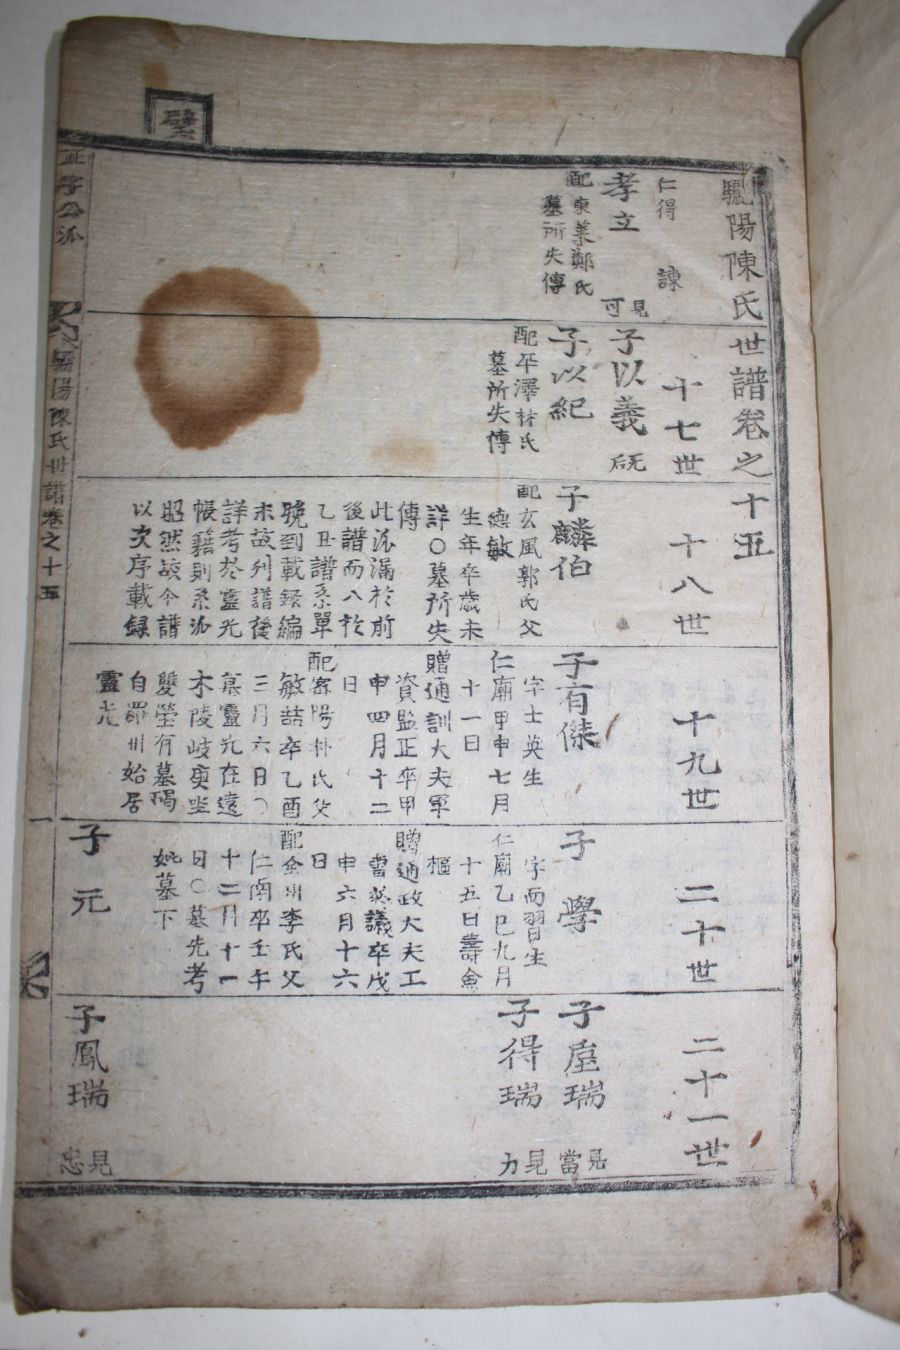 驪陽陳氏世譜卷之十五
仁得 諫
孝立 見可
配東萊鄭氏
墓所失傳
十七世
子以義 无
子以紀
配平澤林氏
墓所失傳
十八世
子麟伯
配玄風郭氏父
德敏
生年卒歲未
詳〇墓所失
傳
此派漏於前
後譜而八於
乙丑譜系單
晩到載錄編
末故刋譜後
詳考於靈光
帳籍則系派
昭然故今譜
以次序載錄
十九世
子有傑
字士英生
仁廟甲申七月
十一日
贈通訓大夫軍
資監正卒甲
申四月十二
日
配密陽朴氏父
敏喆卒乙酉
三月六日〇
墓靈光在遠
木陵岐庚坐
雙塋有墓碣
自羅州始居
靈光
二十世
子學
字而習生
仁廟乙巳九月
十五日壽僉
樞
贈通政大夫工
曹叅議卒戊
申六月十六
日
配金州李氏父
仁南卒壬午
十二月十一
日〇墓先考
妣墓下
子元
二十一世
子屋瑞 見當
子得瑞 見力
子鳳瑞 見忠
壁
正字公派
驪陽陳氏世譜卷之十五
一